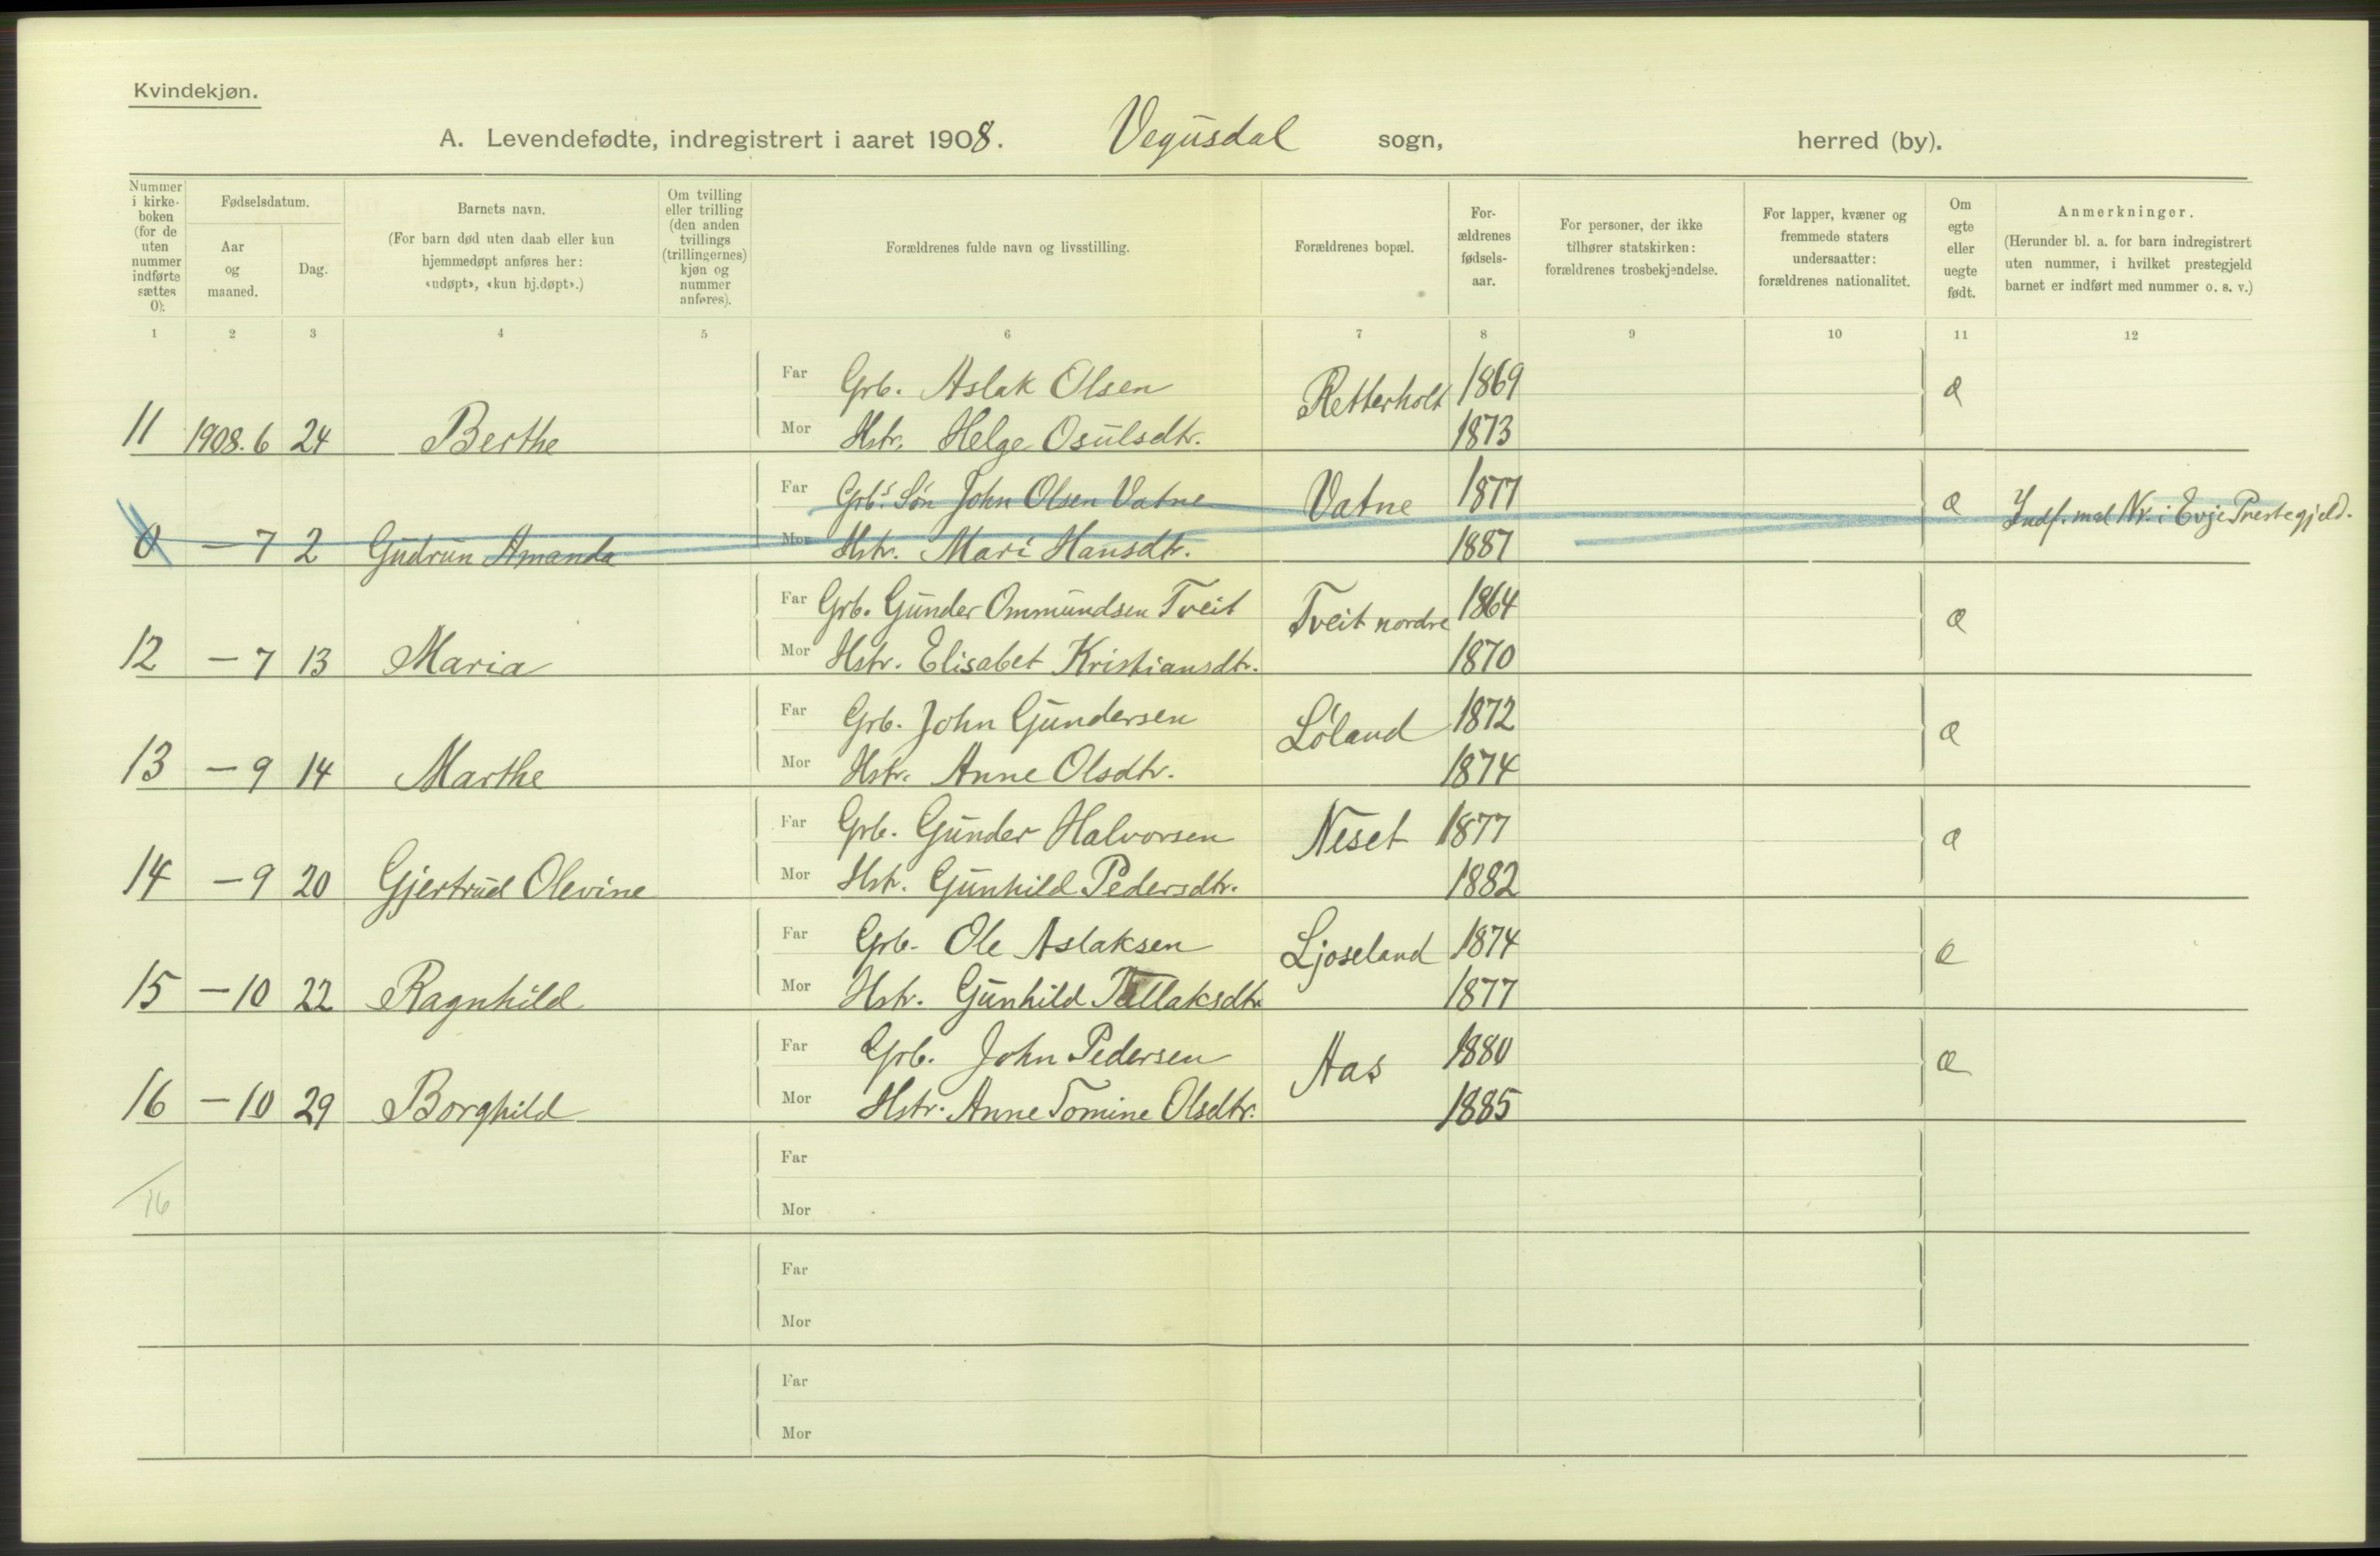 Kvindekjøn.
A. Levendefødte, indregistrert i aaret 1908. Vegusdal sogn, herred (by).
Nummer i kirke-boken (for de uten nummer indførte sættes 0).
Fødselsdatum.
Aar og maaned.
Dag.
Barnets navn.
(For barn død uten daab eller kun hjemmedøpt anføres her: «udøpt», «kun hj.døpt».)
Om tvilling eller trilling (den anden tvillings (trillingernes) kjøn og nummer anføres).
Forældrenes fulde navn og livsstilling.
Forældrenes bopæl.
For-ældrenes fødsels-aar.
For personer, der ikke tilhører statskirken: forældrenes trosbekjendelse.
For lapper, kvæner og fremmede staters undersaatter: forældrenes nationalitet.
Om egte eller uegte født.
Anmerkninger.
(Herunder bl. a. for barn indregistrert uten nummer, i hvilket prestegjeld barnet er indført med nummer o. s. v.)
1 2 3 4 5 6 7 8 9 10 11 12
Far Grb. Aslak Olsen Retterholt 1869 æ
11 1908.6 24 Berthe Mor Hstr. Helge Osulsdtr. 1873
Far Grb's Søn John Olsen Vatne Vatne 1877 æ Indf. med Nr. i Evje Prestegjeld.
0 – 7 2 Gudrun Amanda Mor Hstr. Mari Hansdtr. 1887
Far Grb. Gunder Ommundsen Tveit Tveit nordre 1864 æ
12 – 7 13 Maria Mor Hstr. Elisabet Kristiansdtr. 1870
Far Grb. John Gundersen Løland 1872 æ
13 – 9 14 Marthe Mor Hstr. Anne Olsdtr. 1874
Far Grb. Gunder Halvorsen Neset 1877 æ
14 – 9 20 Gjertrud Olevine Mor Hstr. Gunhild Pedersdtr. 1882
Far Grb. Ole Aslaksen Ljoseland 1874 æ
15 – 10 22 Ragnhild Mor Hstr. Gunhild Tellaksdtr 1877
Far Grb. John Pedersen Aas 1880 æ
16 – 10 29 Borghild Mor Hstr. Anne Tomine Olsdtr. 1885
Far
16 Mor
Far
Mor
Far
Mor